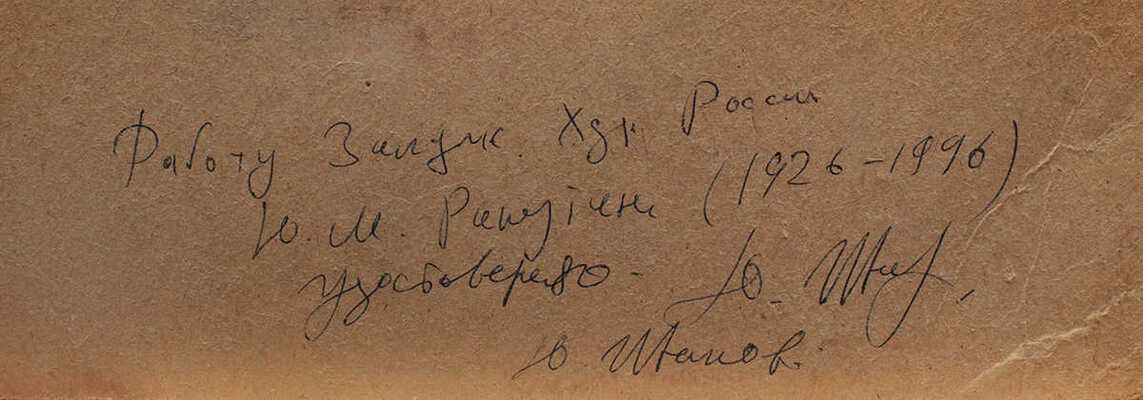 Работу Заслуж. Худ. России
Ю. М. (1926-1996)
удостоверяю - Ю. Шта
Ю. Штапов.